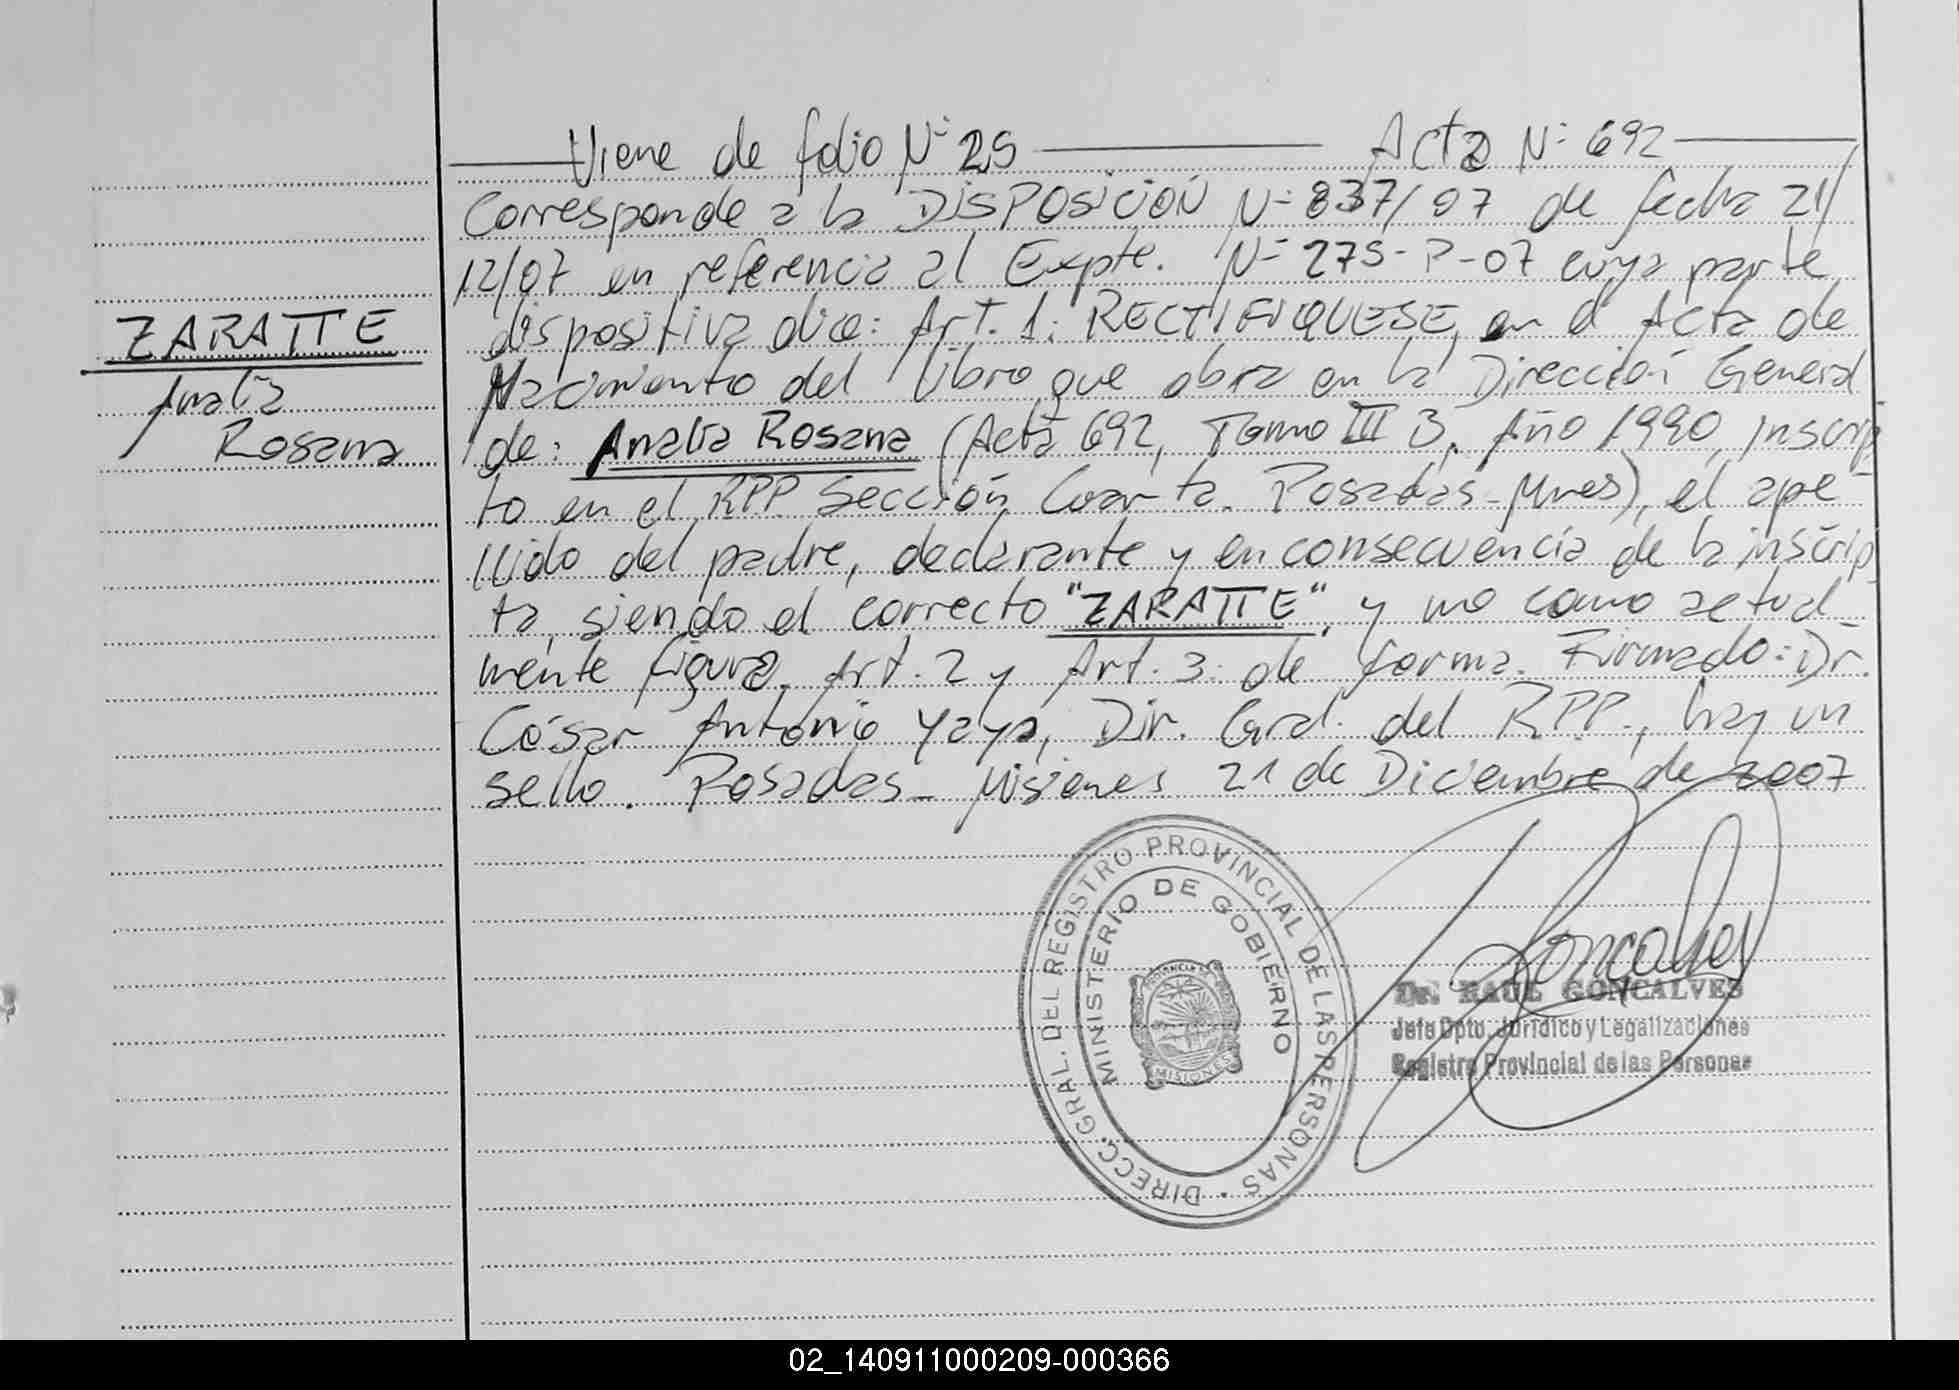 Viene de folio N° 25 Acta N° 692
ZARATTE
Analía
Rosana
Corresponde a la DISPOSICIÓN N° 837/07 de fecha 21/
12/07 en referencia al Expte. N° 275-P-07 cuya parte
dispositiva dice: Art. 1: RECTIFIQUESE, en el Acta de
Nacimiento del libro que obra en la Dirección General
de: Analía Rosana (Acta 692, Tomo III B, Año 1990, inscrip
to en el RPP Sección Cuarta. Posadas-Mnes), el ape-
llido del padre, declarante y en consecuencia de la inscrip
ta, siendo el correcto "ZARATTE", y no como actual-
mente figura. Art. 2 y Art. 3: de forma. Firmado: Dr.
César Antonio Yaya, Dir. Gral. del RPP., hay un
sello. Posadas - Misiones 21 de Diciembre de 2007
DIRECC. GRAL. DEL REGISTRO PROVINCIAL DE LAS PERSONAS
MINISTERIO DE GOBIERNO
PROVINCIA DE
MISIONES
Dr. RAUL GONÇALVES
Jefe Dpto. Jurídico y Legalizaciones
Registro Provincial de las Personas
02_140911000209-000366